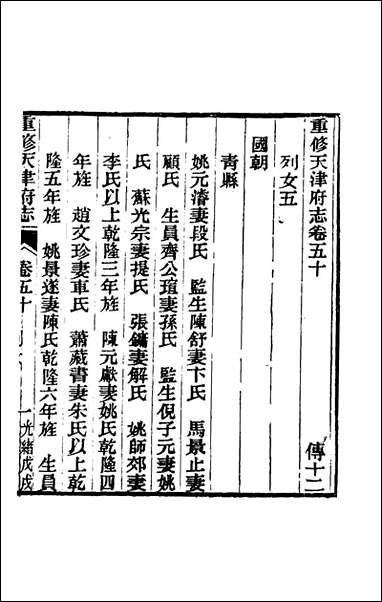 重修天津府志卷五十　傳十二
列女五
國朝
青縣
姚元濤妻段氏　監生陳舒妻卞氏　馬景止妻
顧氏　生員齊公瑄妻孫氏　監生倪子元妻姚
氏　蘇光宗妻提氏　張鏞妻解氏　姚師郊妻
李氏以上乾隆三年旌　陳元獻妻姚氏乾隆四
年旌　趙文珍妻車氏　蕭藏書妻朱氏以上乾
隆五年旌　姚景遂妻陳氏乾隆六年旌　生員
重修天津府志　卷五十　一　光緒戊戌